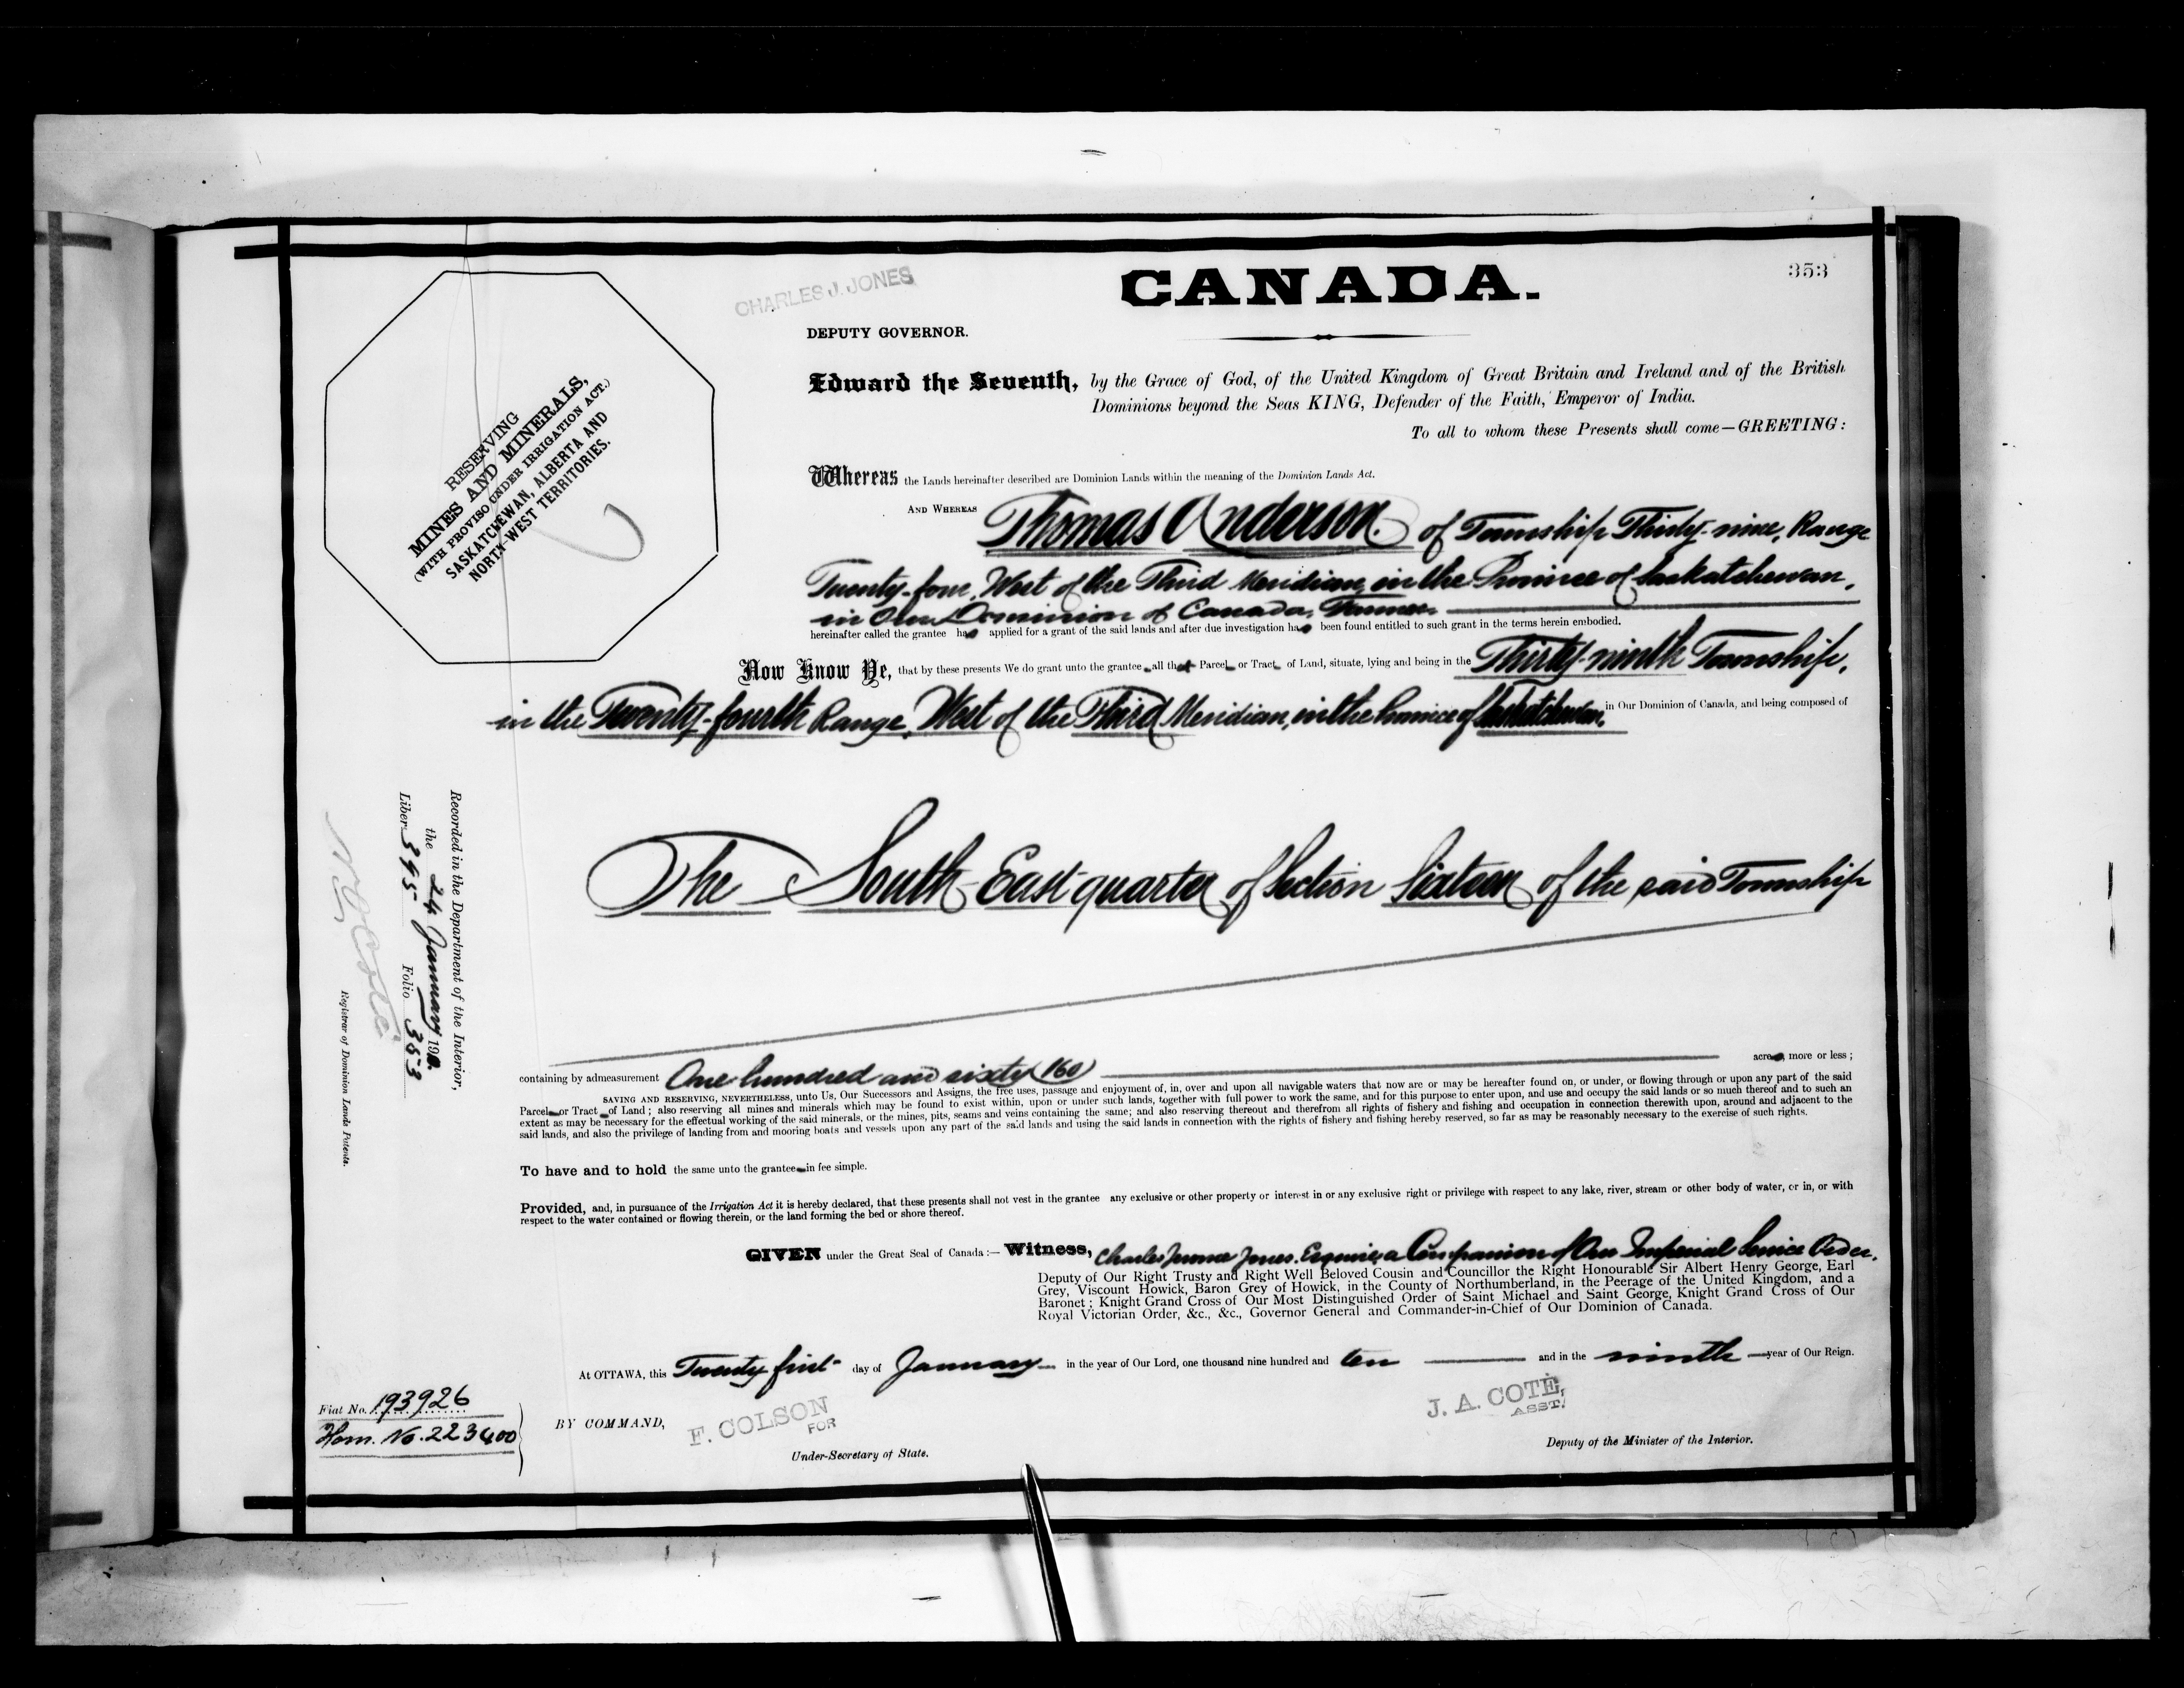 353
CHARLES J. JONES
CANADA.
DEPUTY GOVERNOR.
RESERVING
MINES AND MINERALS,
(WITH PROVISO UNDER IRRIGATION ACT.)
SASKATCHEWAN, ALBERTA AND
NORTH-WEST TERRITORIES.
Edward the Seventh, by the Grace of God, of the United Kingdom of Great Britain and Ireland and of the British
Dominions beyond the Seas KING, Defender of the Faith, Emperor of India.
To all to whom these Presents shall come—GREETING:
Whereas the Lands hereinafter described are Dominion Lands within the meaning of the Dominion Lands Act.
AND WHEREAS Thomas Anderson of Township Thirty-nine, Range
Twenty-four, West of the Third Meridian, in the Province of Saskatchewan,
in Our Dominion of Canada, Farmer
hereinafter called the grantee has applied for a grant of the said lands and after due investigation has been found entitled to such grant in the terms herein embodied.
Now Know Ye, that by these presents We do grant unto the grantee all that Parcel or Tract of Land, situate, lying and being in the Thirty-ninth Township,
in the Twenty-fourth Range, West of the Third Meridian, in the Province of Saskatchewan, in Our Dominion of Canada, and being composed of
The South-East quarter of Section Sixteen of the said Township
containing by admeasurement One hundred and sixty (160) acres, more or less;
SAVING AND RESERVING, NEVERTHELESS, unto Us, Our Successors and Assigns, the free uses, passage and enjoyment of, in, over and upon all navigable waters that now are or may be hereafter found on, or under, or flowing through or upon any part of the said
Parcel or Tract of Land; also reserving all mines and minerals which may be found to exist within, upon or under such lands, together with full power to work the same, and for this purpose to enter upon, and use and occupy the said lands or so much thereof and to such an
extent as may be necessary for the effectual working of the said minerals, or the mines, pits, seams and veins containing the same; and also reserving thereout and therefrom all rights of fishery and fishing and occupation in connection therewith upon, around and adjacent to the
said lands, and also the privilege of landing from and mooring boats and vessels upon any part of the said lands and using the said lands in connection with the rights of fishery and fishing hereby reserved, so far as may be reasonably necessary to the exercise of such rights.
To have and to hold the same unto the grantee in fee simple.
Provided, and, in pursuance of the Irrigation Act it is hereby declared, that these presents shall not vest in the grantee any exclusive or other property or interest in or any exclusive right or privilege with respect to any lake, river, stream or other body of water, or in, or with
respect to the water contained or flowing therein, or the land forming the bed or shore thereof.
GIVEN under the Great Seal of Canada:— Witness, Charles Jerome Jones, Esquire, a Companion of Our Imperial Service Order,
Deputy of Our Right Trusty and Right Well Beloved Cousin and Councillor the Right Honourable Sir Albert Henry George, Earl
Grey, Viscount Howick, Baron Grey of Howick, in the County of Northumberland, in the Peerage of the United Kingdom, and a
Baronet; Knight Grand Cross of Our Most Distinguished Order of Saint Michael and Saint George, Knight Grand Cross of Our
Royal Victorian Order, &c., &c., Governor General and Commander-in-Chief of Our Dominion of Canada.
At OTTAWA, this Twenty first day of January in the year of Our Lord, one thousand nine hundred and ten and in the ninth year of Our Reign.
Fiat No. 193926
Hom. No. 223400
BY COMMAND,
F. COLSON
FOR
Under-Secretary of State.
J. A. COTÉ,
ASST.
Deputy of the Minister of the Interior.
Recorded in the Department of the Interior,
the 24 January 1910.
Liber 395 Folio 353
Registrar of Dominion Lands Patents.